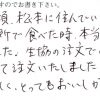 すのでお書き下さい。
頃、松本に住んでい
所で食べた時、本当
した。生協の注文で
て注文いたしました
く、とってもおいしか